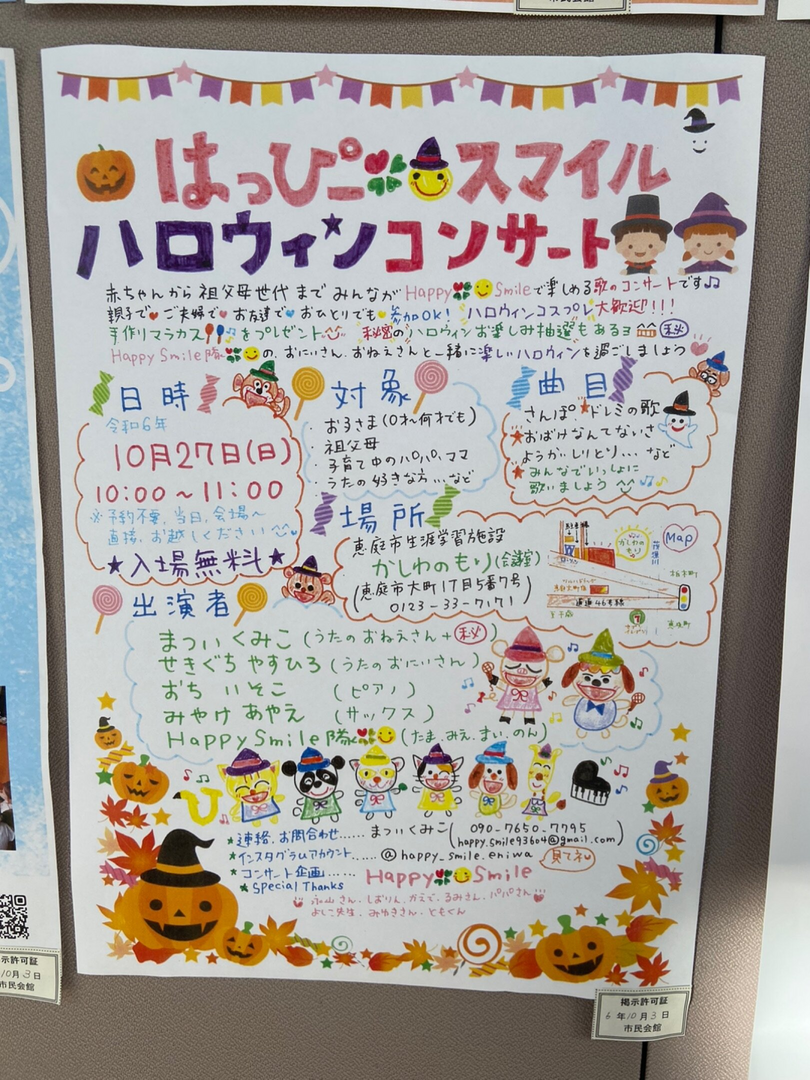 はっぴー スマイル
ハロウィン コンサート
赤ちゃんから 祖父母世代 まで みんなが Happy Smileで楽しめる歌のコンサートです♫
親子で♥ ご夫婦で♥ お友達で♥ おひとりでも♥ 参加OK! ハロウィンコスプレ大歓迎!!!
手作りマラカス♫をプレゼント 秘密の ハロウィンお楽しみ抽選もあるヨ 秘
Happy Smile隊の、おにいさん、おねえさんと一緒に楽しいハロウィンを過ごしましょう
日時
令和6年
10月27日(日)
10:00～11:00
※予約不要、当日、会場へ
直接、お越しください
★入場無料★
対象
・お子さま(0才～何才でも)
・祖父母
・子育て中のパパ、ママ
・うたの好きな方...など
曲目
さんぽ★ドレミの歌
★おばけなんてないさ
ようかいしりとり...など
★みんなでいっしょに
歌いましょう ♫♪
場所
恵庭市生涯学習施設
かしわのもり(会議室)
(恵庭市大町1丁目5番7号)
0123-33-7171
Map
駐車場
かしわのもり
柏木町
道道46号線
恵み野
出演者
まつい くみこ (うたのおねえさん+秘)
せきぐち やすひろ (うたのおにいさん)
おち いそこ (ピアノ)
みやけ あやえ (サックス)
Happy Smile隊 (たま、みえ、まい、のん)
★連絡、お問合わせ...... まついくみこ(090-7650-7795
happy.smile93604@gmail.com)
★インスタグラムアカウント.....@happy_smile.eniwa 見てネ
★コンサート企画...... Happy Smile
★Special Thanks
永山さん、しおりん、かえで、るみさん、パパさん
よしこ先生、みゆきさん、ともくん
掲示許可証
6年10月3日
市民会館
示許可証
10月3日
市民会館
市民会館